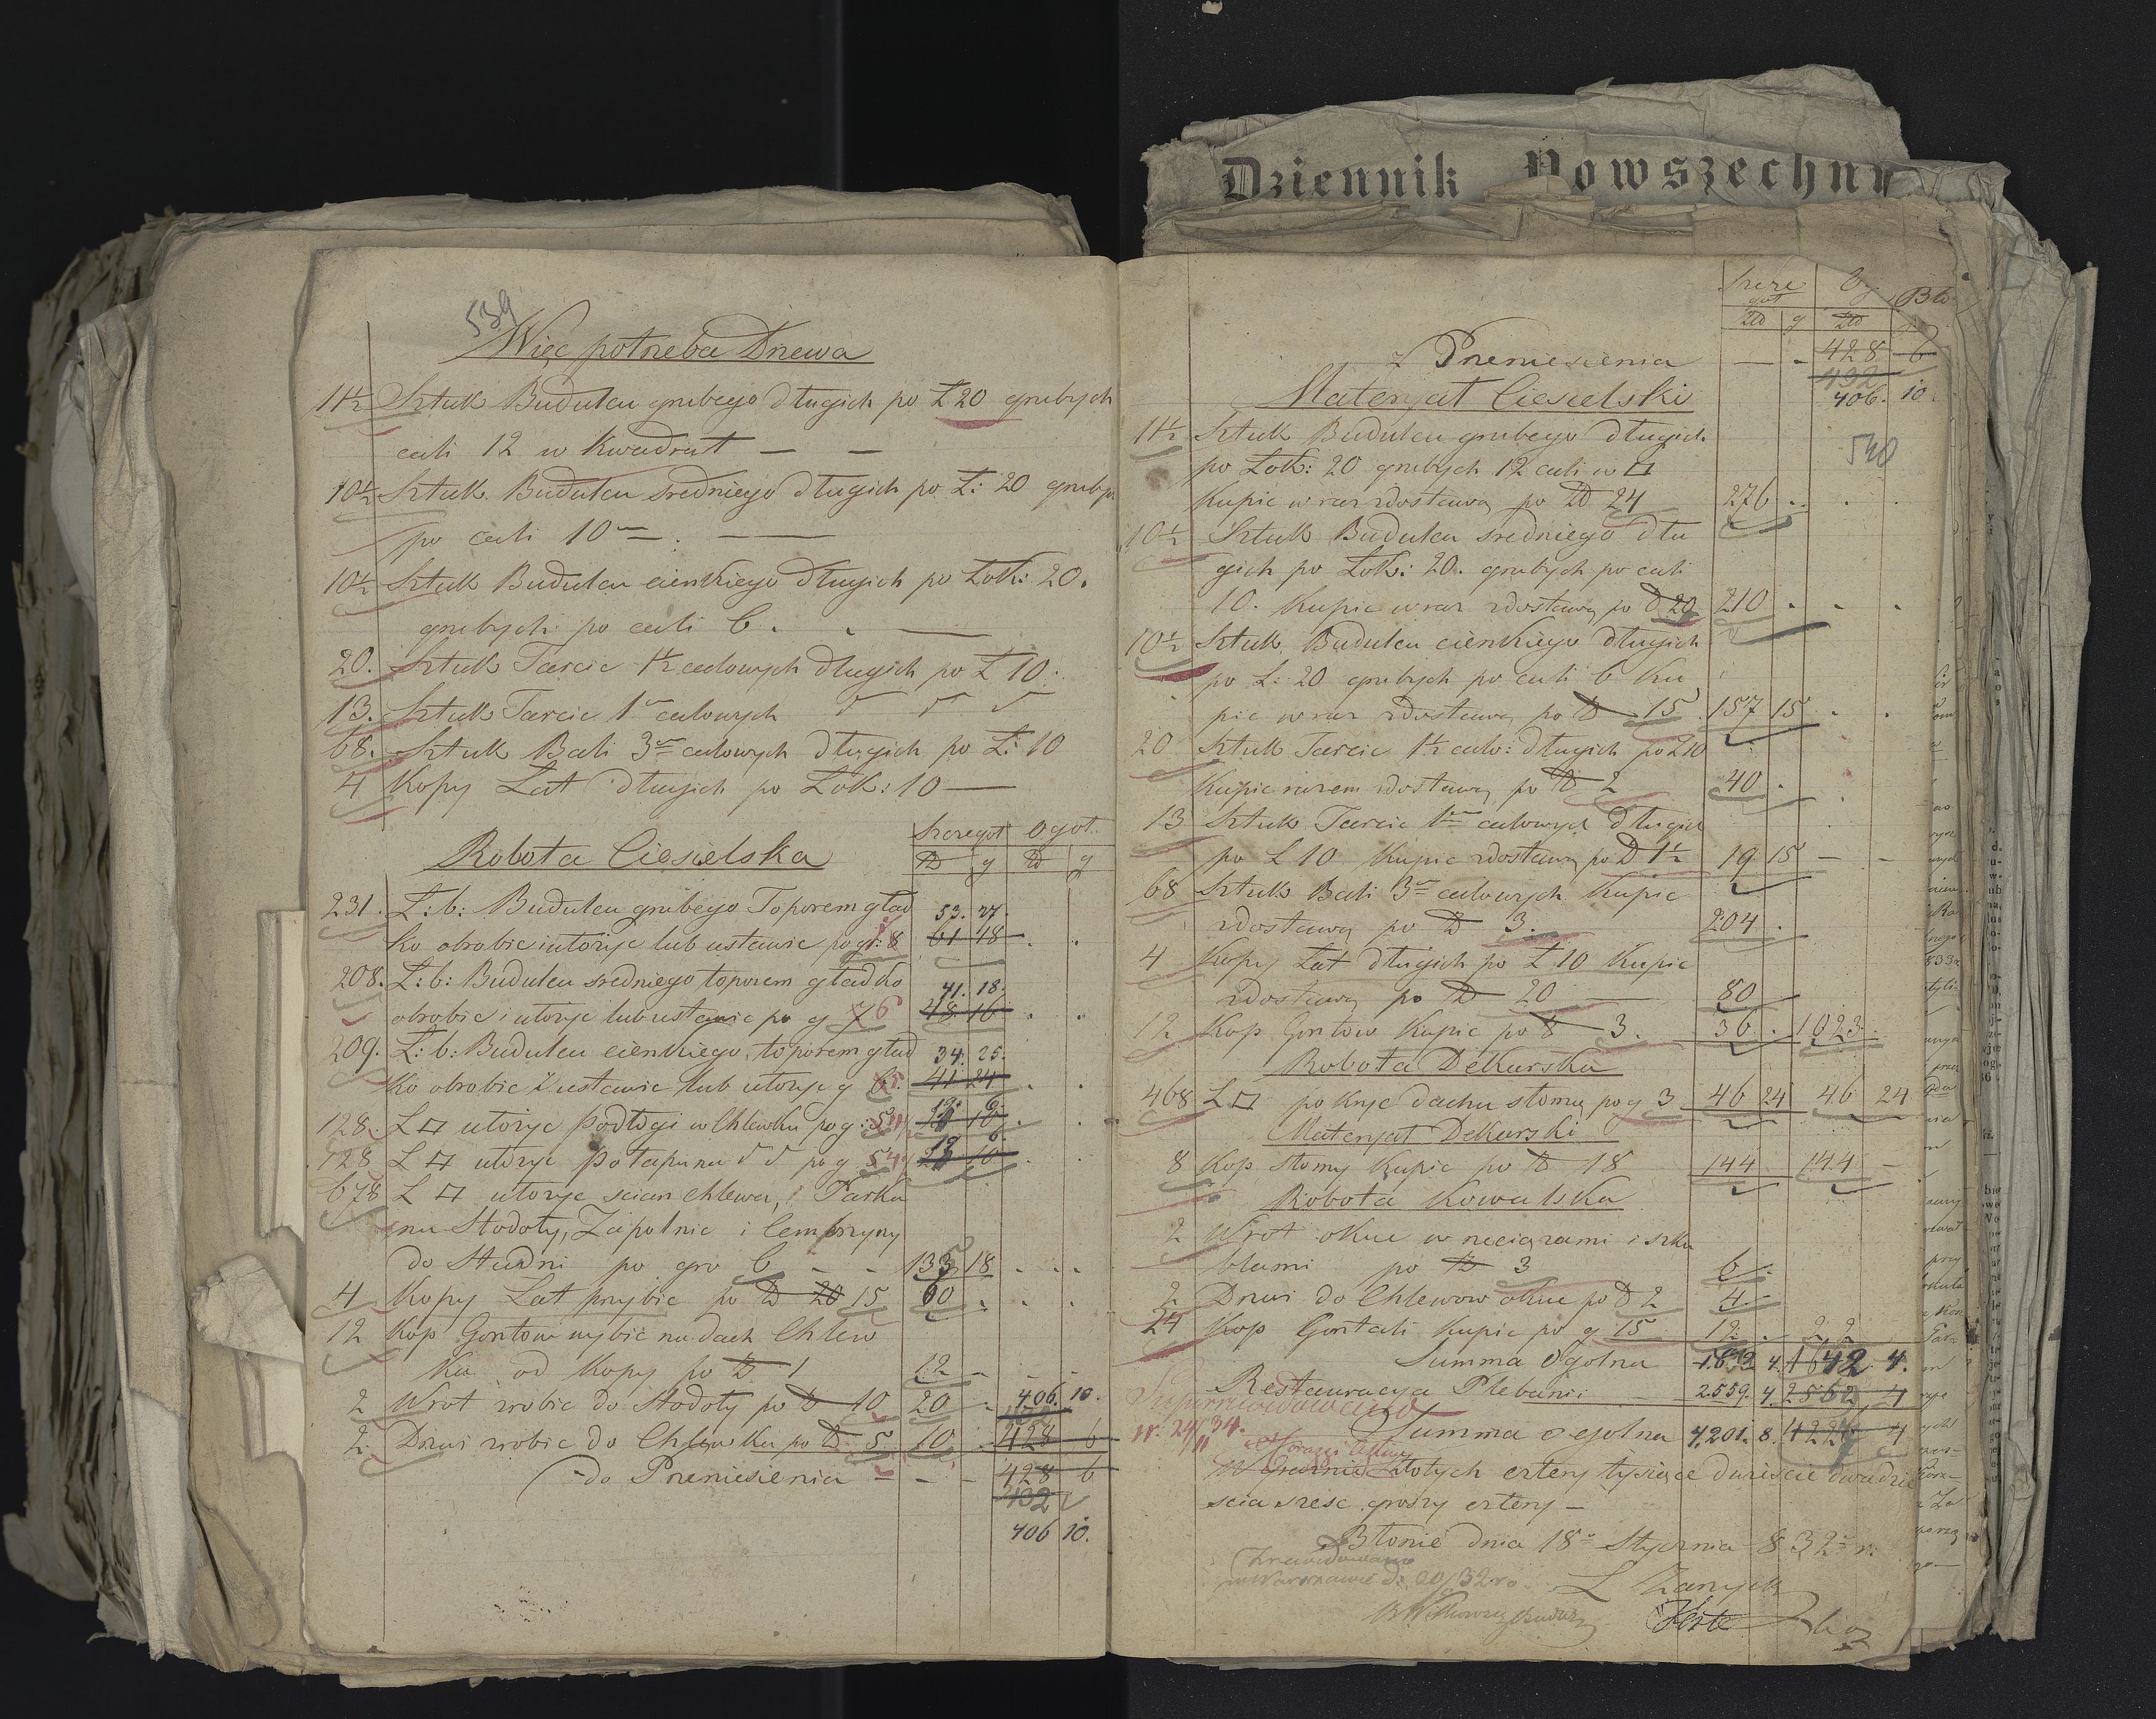 539
Więc potrzeba Drzewa
11½ Sztuk Budulcu grubego długich po Ł 20 grubych
cali 12 w Kwadrat — —
10½ Sztuk Budulcu sredniego długich po Ł: 20 grubych
po cali 10 — . — —
10½ Sztuk Budulcu cienkiego długich po Łok: 20.
grubych po cali 6 . . —
20. Sztuk Tarcic 1½ calowych długich po Ł 10.
13. Sztuk Tarcic 1 calowych
68. Sztuk Bali 3 calowych długich po Ł: 10
4 Kopy Łat długich po Łok: 10 —
Szczegół Ogół.
Robota Ciesielska
Zł g Zł g
231. Ł: b: Budulcu grubego Toporem gład 53. 27.
ko obrobic i utorzyc lub ustawic po gr: 8 61 18
208. Ł: b: Budulcu sredniego toporem gładko 41. 18.
obrobic i utorzyc lub ustawic po g 7 6 48 16
209. Ł: b: Budulcu cienkiego, toporem gład 34. 25.
ko obrobic i ustawic lub utorzyc g 6 5. 41 24
128. Ł □ utorzyc Podłogi w Chlewku po g: 5
128 Ł □ utorzyc Potapunu po g 5
678 Ł □ utorzyc scian chlewa, i Parka
nu Stodoły, Zapolnic i Cembrzyny
do Studni po gro 6 - - 135 18
4 Kopy Łat przybic po Zł 20 15 60
12 Kop Gontow wybic na dach Chlew
ka od Kopy po Zł 1 12 —
2 Wrot zrobic do Stodoły po Zł 10 20 406. 10.
2. Drzwi zrobic do Chlewka po Zł 5. 10 428 6
do Przeniesienia — — — 428 6
432
406 10.
Szcze
guł Og Bto
Zł g Zł
z Przeniesienia — - 428 6
432
Materyał Ciesielski 406. 10.
11½ Sztuk Budulcu grubego długich
540
po Łok: 20 grubych 12 cali w □
Kupic wraz zdostawą po Zł 24 276
10½ Sztuk Budulcu sredniego dłu
gich po Łok: 20. grubych po cali
10. Kupic wraz zdostawą po Zł 20 210
10½ Sztuk Budulcu cienkiego długich
po Ł: 20 grubych po cali 6 Ku
pic wraz zdostawą po Zł 15 157 15
20 Sztuk Tarcic 1½ calo: długich po Ł 10
Kupic razem zdostawą po Zł 2 40
13 Sztuk Tarcic 1 calowych długich
po Ł 10 Kupic zdostawą po Zł 1½ 19 15 — -
68 Sztuk Bali 3 calowych Kupic
zdostawą po Zł 3. 204
4 Kopy Łat długich po Ł 10 Kupic
zdostawą po Zł 20 80
12 Kop Gontow Kupic po Zł 3. 36 . 1023.
Robota Dekarska
468 Ł □ pokryc dachu słomą po g 3 46 24 46 24
Materyał Dekarski
8 Kop słomy Kupic po Zł 18 144 144 —
Robota Kowalska
2 Wrot okuc w zeciązami i szku
blami po Zł 3 6
2 Drzwi do Chlewow okuc po Zł 2 4
24 Kop Gontali Kupic po g 15 12 . 22
Summa Ogolna 1642 4.
Restauracya Plebanii — 2559. 4. 2562 4
Summa ogolna 4,201. 8.
W Summie Złotych cztery tysiące dwiescie dwadzie
scia szesc groszy cztery —
Błonie dnia 18 Stycznia 832 r.
Zrewidowano
w Warszawie d. 20/ 32 ro.
Dziennik Powszechny